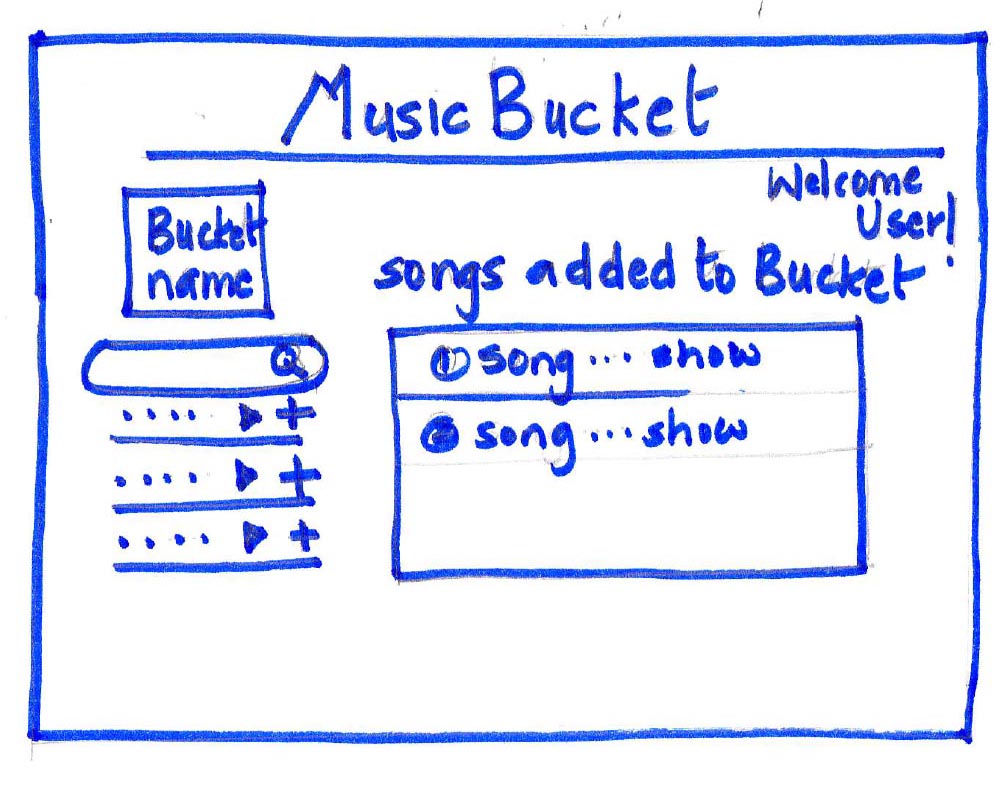 Music Bucket
Welcome
User!
Bucket
name
songs added to Bucket
① song ... show
② song ... show